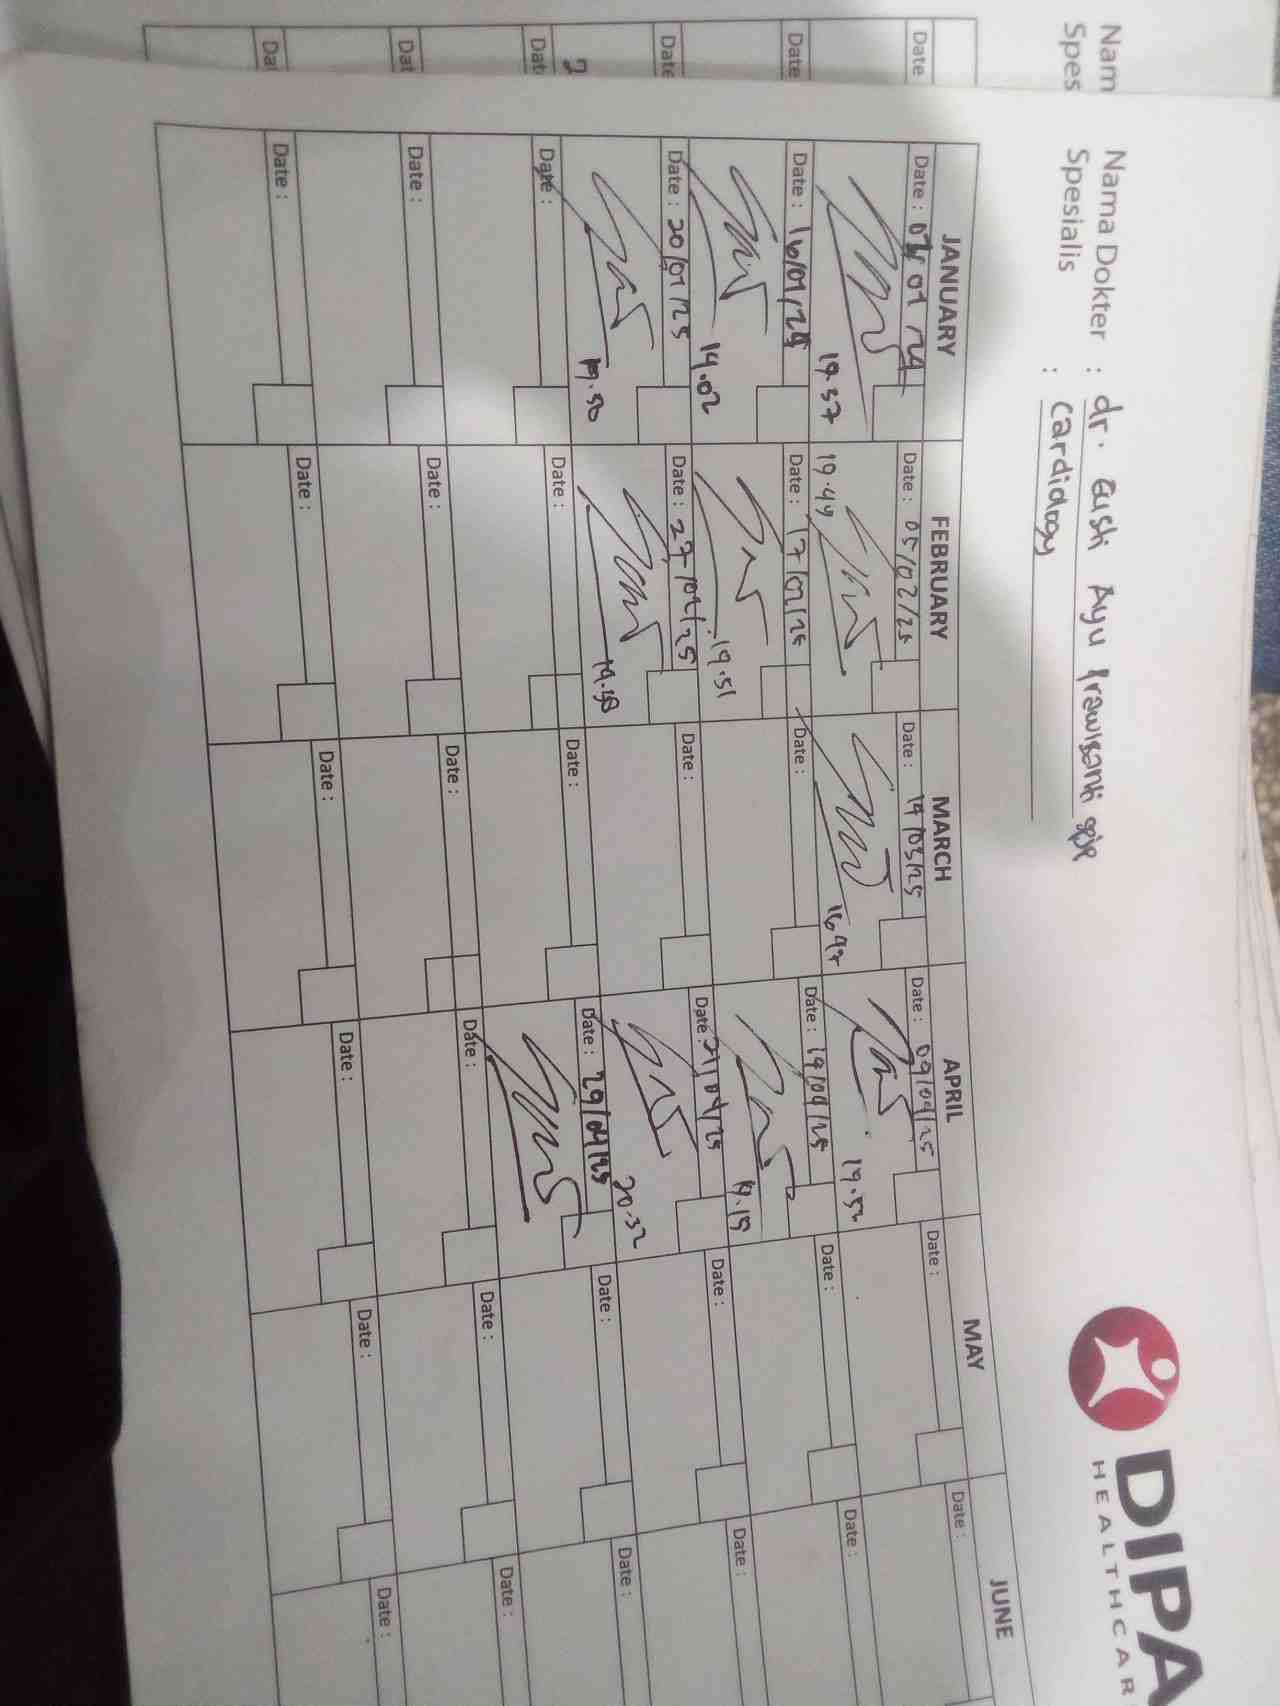 Nam
Spes
Date
Date
Date
Dat
2
Dat
Dat
DIPA
HEALTHCAR
Nama Dokter : dr. Ayu
Spesialis : Cardiology
JANUARY FEBRUARY MARCH APRIL MAY JUNE
Date : 01/24 Date : 05/02/25 Date : 19/03/25 Date : 09/04/25 Date : Date :
19.37 19.49 19.52
Date : 16/01/25 Date : 17/02/25 Date : Date : 19/04/25 Date : Date :
19.02 19.51 19.19
Date : 20/01/25 Date : 27/02/25 Date : Date : 21/04/25 Date : Date :
19.50 20.32
Date : Date : Date : Date : 29/04/25 Date : Date :
Date : Date : Date : Date : Date : Date :
Date : Date : Date : Date : Date : Date :